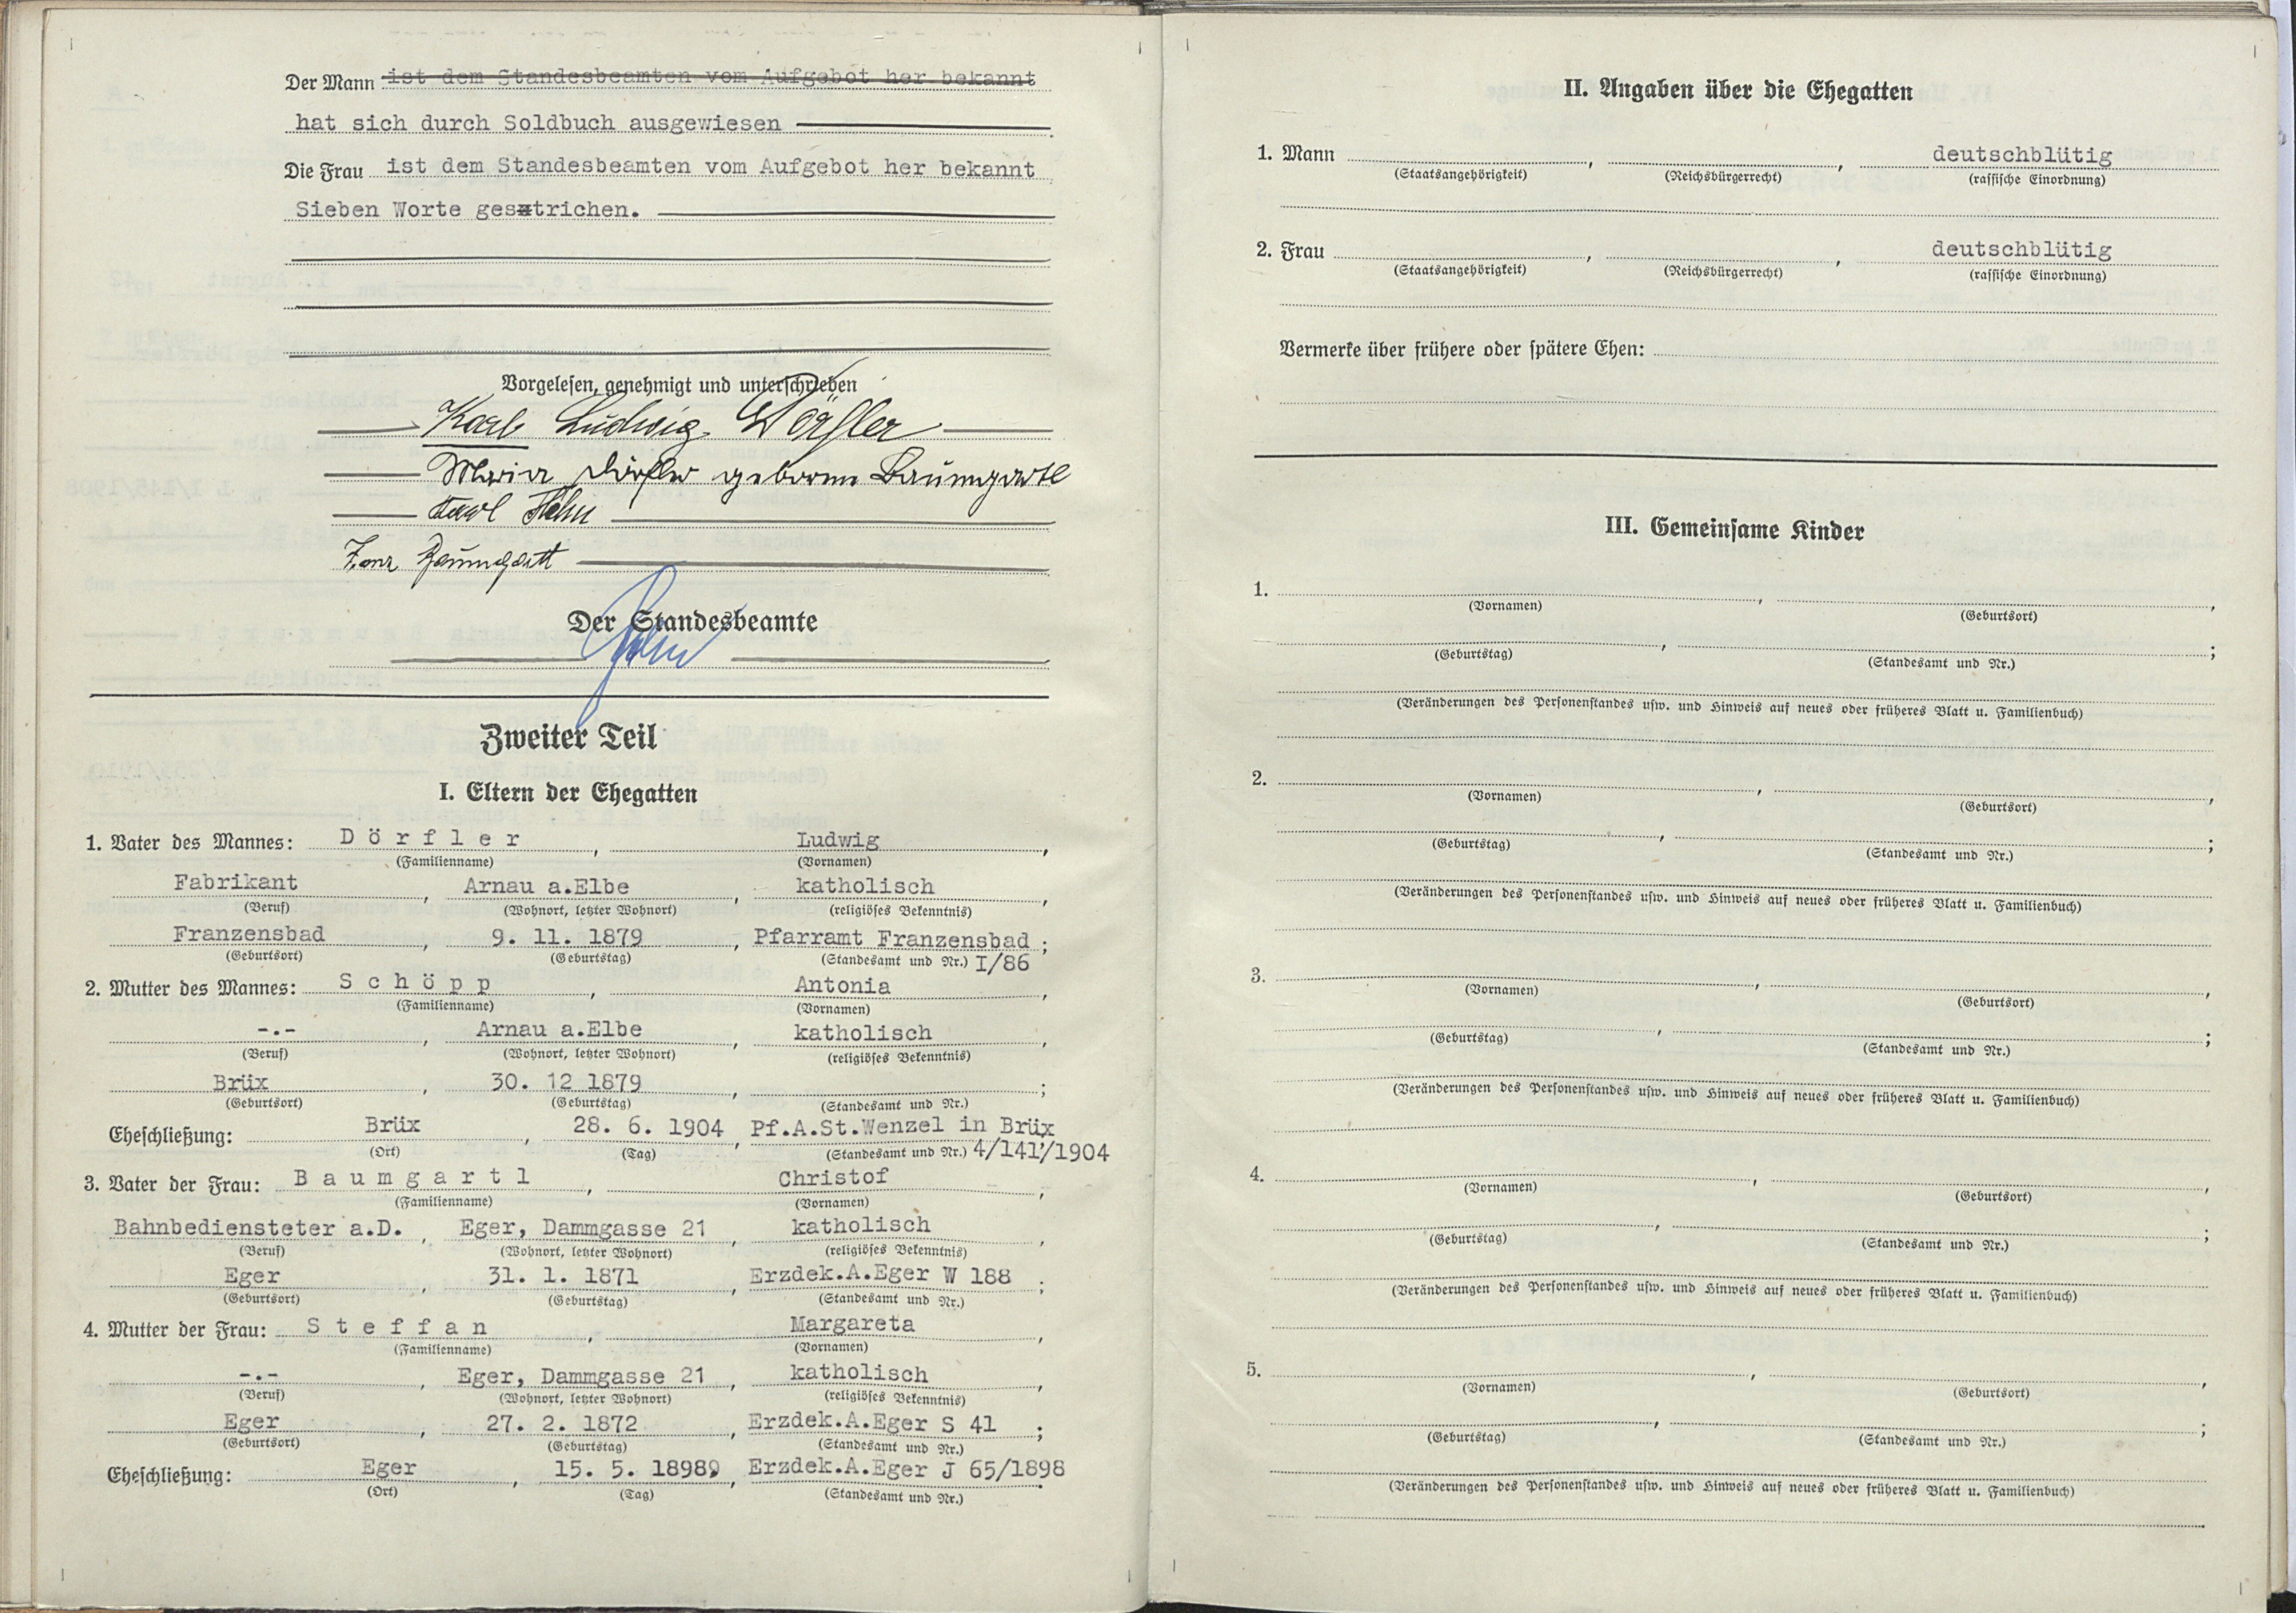 Der Mann ist dem Standesbeamten vom Aufgebot her bekannt
hat sich durch Soldbuch ausgewiesen
Die Frau ist dem Standesbeamten vom Aufgebot her bekannt
Sieben Worte gesxtrichen.
Vorgelesen, genehmigt und unterschrieben
Karl Ludwig Dörfler
Maria Dörfler geborene Baumgartl
Karl Hahn
Baumgartl
Der Standesbeamte
Zweiter Teil
I. Eltern der Ehegatten
1. Vater des Mannes: Dörfler, Ludwig,
(Familienname) (Vornamen)
Fabrikant, Arnau a.Elbe, katholisch,
(Beruf) (Wohnort, letzter Wohnort) (religiöses Bekenntnis)
Franzensbad, 9. 11. 1879, Pfarramt Franzensbad;
(Geburtsort) (Geburtstag) (Standesamt und Nr.) I/86
2. Mutter des Mannes: Schöpp, Antonia,
(Familienname) (Vornamen)
-.-, Arnau a.Elbe, katholisch,
(Beruf) (Wohnort, letzter Wohnort) (religiöses Bekenntnis)
Brüx, 30. 12 1879, ;
(Geburtsort) (Geburtstag) (Standesamt und Nr.)
Eheschließung: Brüx, 28. 6. 1904, Pf.A.St.Wenzel in Brüx
(Ort) (Tag) (Standesamt und Nr.) 4/141'/1904
3. Vater der Frau: Baumgartl, Christof,
(Familienname) (Vornamen)
Bahnbediensteter a.D., Eger, Dammgasse 21, katholisch,
(Beruf) (Wohnort, letzter Wohnort) (religiöses Bekenntnis)
Eger, 31. 1. 1871, Erzdek.A.Eger W 188;
(Geburtsort) (Geburtstag) (Standesamt und Nr.)
4. Mutter der Frau: Steffan, Margareta,
(Familienname) (Vornamen)
-.-, Eger, Dammgasse 21, katholisch,
(Beruf) (Wohnort, letzter Wohnort) (religiöses Bekenntnis)
Eger, 27. 2. 1872, Erzdek.A.Eger S 41;
(Geburtsort) (Geburtstag) (Standesamt und Nr.)
Eheschließung: Eger, 15. 5. 1898, Erzdek.A.Eger J 65/1898.
(Ort) (Tag) (Standesamt und Nr.)
II. Angaben über die Ehegatten
1. Mann , , deutschblütig
(Staatsangehörigkeit) (Reichsbürgerrecht) (rassische Einordnung)
2. Frau , , deutschblütig
(Staatsangehörigkeit) (Reichsbürgerrecht) (rassische Einordnung)
Vermerke über frühere oder spätere Ehen:
III. Gemeinsame Kinder
1. , ,
(Vornamen) (Geburtsort)
, ;
(Geburtstag) (Standesamt und Nr.)
(Veränderungen des Personenstandes usw. und Hinweis auf neues oder früheres Blatt u. Familienbuch)
2. , ,
(Vornamen) (Geburtsort)
, ;
(Geburtstag) (Standesamt und Nr.)
(Veränderungen des Personenstandes usw. und Hinweis auf neues oder früheres Blatt u. Familienbuch)
3. , ,
(Vornamen) (Geburtsort)
, ;
(Geburtstag) (Standesamt und Nr.)
(Veränderungen des Personenstandes usw. und Hinweis auf neues oder früheres Blatt u. Familienbuch)
4. , ,
(Vornamen) (Geburtsort)
, ;
(Geburtstag) (Standesamt und Nr.)
(Veränderungen des Personenstandes usw. und Hinweis auf neues oder früheres Blatt u. Familienbuch)
5. , ,
(Vornamen) (Geburtsort)
, ;
(Geburtstag) (Standesamt und Nr.)
(Veränderungen des Personenstandes usw. und Hinweis auf neues oder früheres Blatt u. Familienbuch)